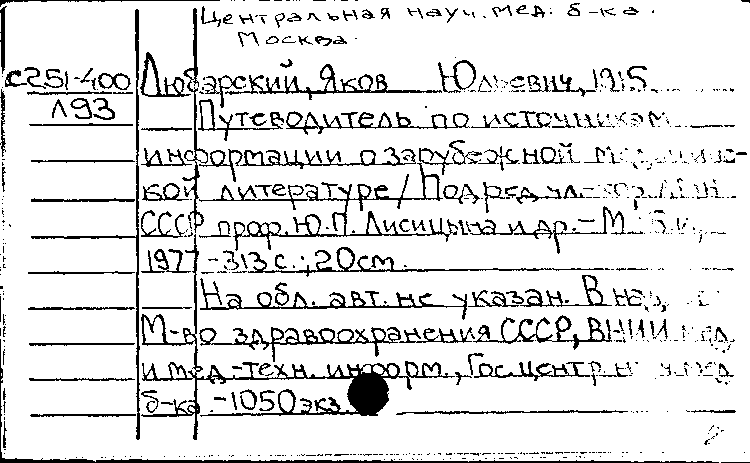 Центральная науч. мед. б-ка.
Москва.
С251-400 Любарский, Яков Юльевич, 1915
Л93 Путеводитель по источникам
информации о зарубежной медицинс-
кой литературе / Под ред. чл.-кор. АМН
СССР проф. Ю.П. Лисицына и др. - М.: Б.и.,
1977 - 313 с.; 20 см.
На обл. авт. не указан. В над
М-во здравоохранения СССР, ВНИИ мед.
и мед.-техн. информ., Гос. центр. н мед
б-ка. - 1050 экз.